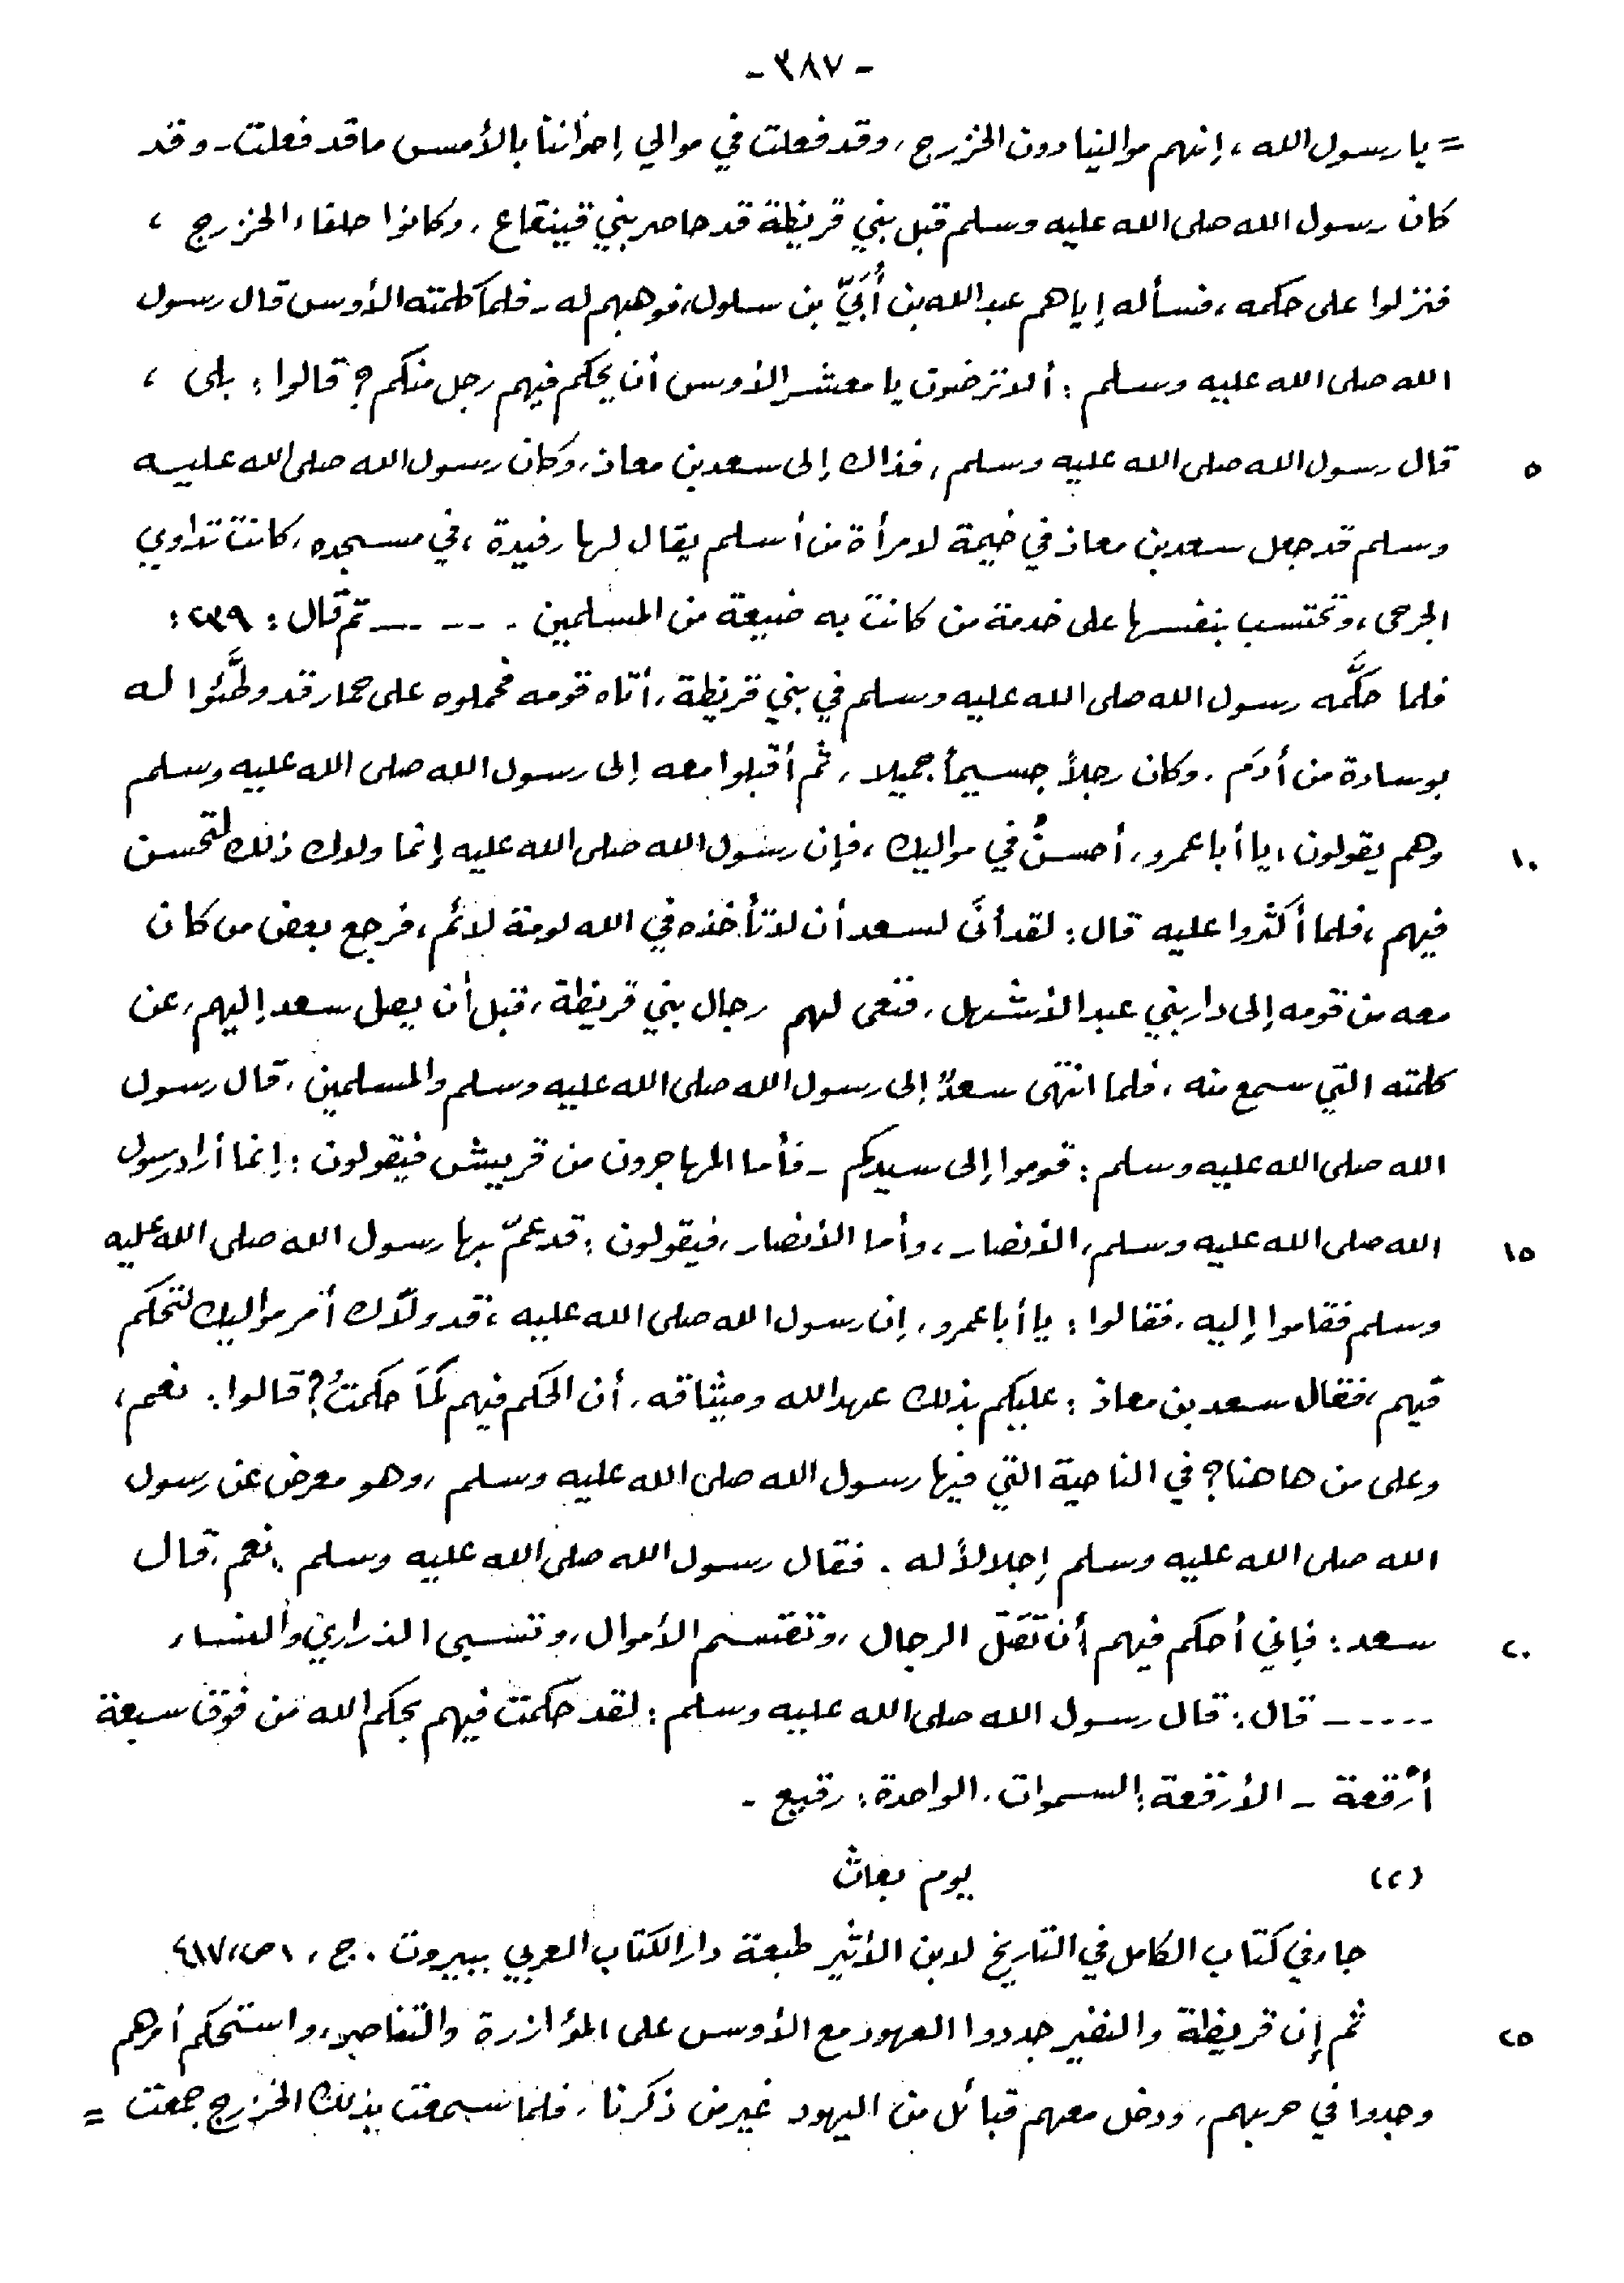 - ٣٨٧ -
= يا رسول الله، إنهم موالينا دون الخزرج، وقد فعلت في موالي إخواننا بالأمس ما قد فعلت - وقد
كان رسول الله صلى الله عليه وسلم قبل بني قريظة قد حاصر بني قينقاع، وكانوا حلفاء الخزرج ،
فنزلوا على حكمه، فسأله إياهم عبدالله بن أُبَيّ بن سلول، فوهبهم له - فلما كلمته الأوس قال رسول
الله صلى الله عليه وسلم : ألا ترضون يا معشر الأوس أن يحكم فيهم رجل منكم؟ قالوا : بلى ،
٥ قال رسول الله صلى الله عليه وسلم، فذاك إلى سعد بن معاذ، وكان رسول الله صلى الله عليه
وسلم قد جعل سعد بن معاذ في خيمة لامرأة من أسلم يقال لها رفيدة، في مسجده، كانت تداوي
الجرحى، وتحتسب بنفسها على خدمة من كانت به ضيعة من المسلمين . - - - - ثم قال : ٢٣٩ :
فلما حكَّمه رسول الله صلى الله عليه وسلم في بني قريظة، أتاه قومه فحملوه على حمار قد وطَّئوا له
بوسادة من أدَم، وكان رجلاً جسيماً جميلا، ثم أقبلوا معه إلى رسول الله صلى الله عليه وسلم
١٠ وهم يقولون، يا أبا عمرو، أحسنْ في مواليك، فإن رسول الله صلى الله عليه إنما ولاك ذلك لتحسن
فيهم، فلما أكثروا عليه قال : لقد أنَى لسعد أن لا تأخذه في الله لومة لائم، فرجع بعض من كان
معه من قومه إلى دار بني عبد الأشهل، فنعى لهم رجال بني قريظة، قبل أن يصل سعد إليهم، عن
كلمته التي سمع منه، فلما انتهى سعدٌ إلى رسول الله صلى الله عليه وسلم والمسلمين، قال رسول
الله صلى الله عليه وسلم : قوموا إلى سيدكم - فأما المهاجرون من قريش فيقولون : إنما أراد رسول
١٥ الله صلى الله عليه وسلم، الأنصار، وأما الأنصار، فيقولون : قد عمّ بها رسول الله صلى الله عليه
وسلم فقاموا إليه، فقالوا : يا أبا عمرو، إن رسول الله صلى الله عليه ، قد ولّاك أمر مواليك لتحكم
فيهم، فقال سعد بن معاذ : عليكم بذلك عهد الله وميثاقه، أن الحكم فيهم لَمَا حكمتُ؟ قالوا : نعم،
وعلى من هاهنا؟ في الناحية التي فيها رسول الله صلى الله عليه وسلم، وهو معرض عن رسول
الله صلى الله عليه وسلم إجلالاً له . فقال رسول الله صلى الله عليه وسلم : نعم، قال
٢٠ سعد : فإني أحكم فيهم أن تقتل الرجال، وتقتسم الأموال، وتسبى الذراري والنساء
- - - - - قال : قال رسول الله صلى الله عليه وسلم : لقد حكمت فيهم بحكم الله من فوق سبعة
أرْقعة - الأرقعة : السموات، الواحدة : رقيع -
(٢) يوم بعاث
جاء في كتاب الكامل في التاريخ لابن الأثير طبعة دار الكتاب العربي ببيروت . ج ، ١ ص، ٤١٧
٢٥ ثم إن قريظة والنضير جددوا العهود مع الأوس على المؤازرة والتناصر، واستحكم أمرهم
وجدوا في حربهم، ودخل معهم قبائل من اليهود غير من ذكرنا، فلما سمعت بذلك الخزرج جمعت =